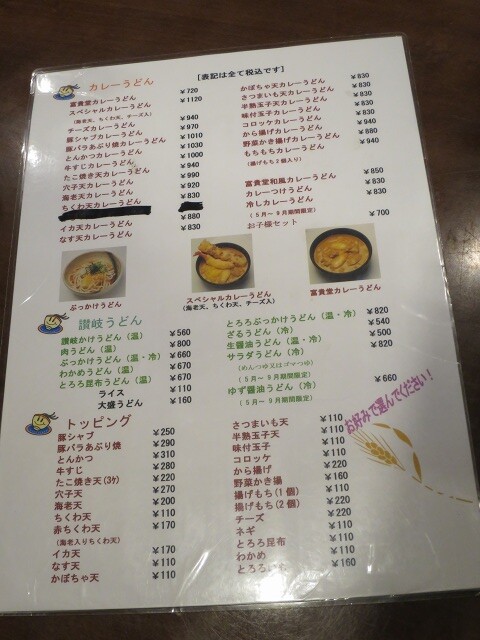 カレーうどん
[表記は全て税込です]
富貴堂カレーうどん ¥720
スペシャルカレーうどん ¥1120
(海老天、ちくわ天、チーズ入)
チーズカレーうどん ¥940
豚シャブカレーうどん ¥970
豚バラあぶり焼カレーうどん ¥1010
とんかつカレーうどん ¥1030
牛すじカレーうどん ¥1000
たこ焼き天カレーうどん ¥940
穴子天カレーうどん ¥990
海老天カレーうどん ¥920
ちくわ天カレーうどん ¥830
¥880
イカ天カレーうどん ¥830
なす天カレーうどん
かぼちゃ天カレーうどん ¥830
さつまいも天カレーうどん ¥830
半熟玉子天カレーうどん ¥830
味付玉子カレーうどん ¥830
コロッケカレーうどん ¥830
から揚げカレーうどん ¥940
野菜かき揚げカレーうどん ¥880
もちもちカレーうどん ¥940
(揚げもち2個入り)
富貴堂和風カレーうどん ¥850
カレーつけうどん ¥830
冷しカレーうどん ¥830
(5月～9月期間限定)
お子様セット ¥700
ぶっかけうどん
スペシャルカレーうどん
(海老天、ちくわ天、チーズ入)
富貴堂カレーうどん
讃岐うどん
讃岐かけうどん(温) ¥560
肉うどん(温) ¥800
ぶっかけうどん(温・冷) ¥660
わかめうどん(温) ¥670
とろろ昆布うどん(温) ¥670
ライス ¥110
大盛うどん ¥160
とろろぶっかけうどん(温・冷) ¥820
ざるうどん(冷) ¥540
生醤油うどん(温・冷) ¥500
サラダうどん(冷) ¥820
(めんつゆ又はゴマつゆ)
(5月～9月期間限定)
ゆず醤油うどん(冷) ¥660
(5月～9月期間限定)
お好みで選んでください!
トッピング
豚シャブ ¥250
豚バラあぶり焼 ¥290
とんかつ ¥310
牛すじ ¥280
たこ焼き天(3ヶ) ¥220
穴子天 ¥270
海老天 ¥200
ちくわ天 ¥110
赤ちくわ天 ¥170
(海老入りちくわ天)
イカ天 ¥170
なす天 ¥110
かぼちゃ天 ¥110
さつまいも天 ¥110
半熟玉子天 ¥110
味付玉子 ¥110
コロッケ ¥110
から揚げ ¥220
野菜かき揚 ¥160
揚げもち(1個) ¥110
揚げもち(2個) ¥220
チーズ ¥220
ネギ ¥110
とろろ昆布 ¥110
わかめ ¥110
とろろ ¥160